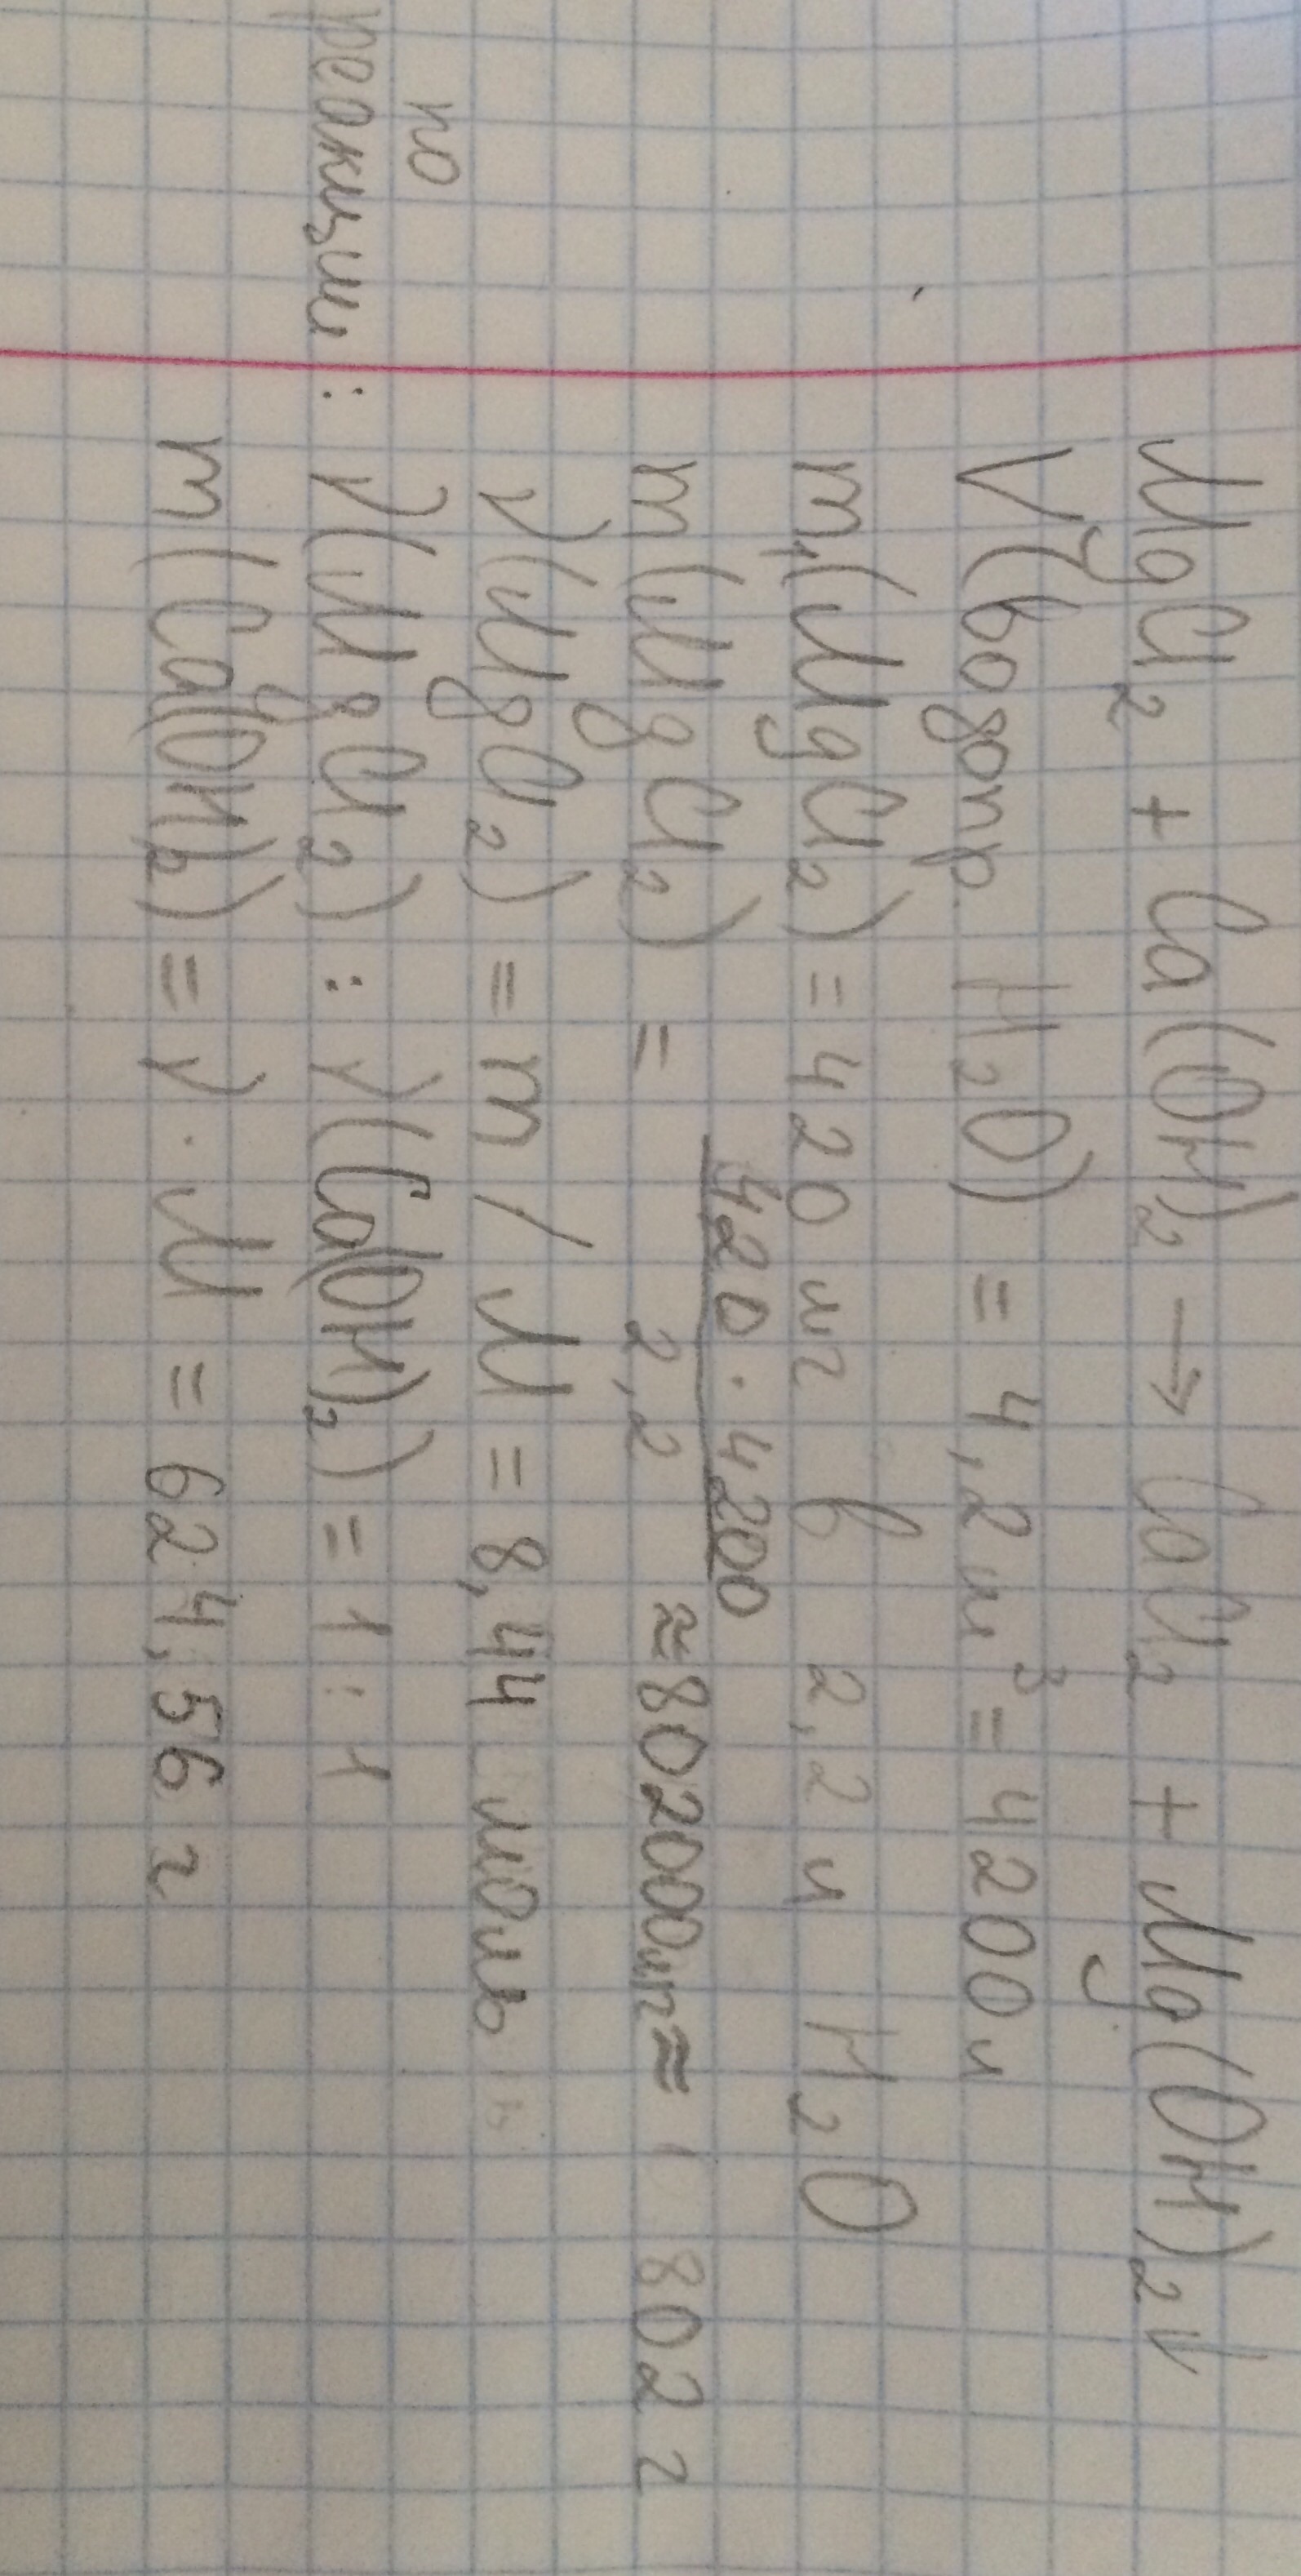 MgCl₂ + Ca(OH)₂ → CaCl₂ + Mg(OH)₂↓
V(водопр. H₂O) = 4,2 м³ = 4200 л
m₁(MgCl₂) = 420 мг в 2,2 л H₂O
m(MgCl₂) = 420 · 4200 / 2,2 ≈ 802000 мг ≈ 802 г
ν(MgCl₂) = m / M = 8,44 моль
по реакции: ν(MgCl₂) : ν(Ca(OH)₂) = 1 : 1
m(Ca(OH)₂) = ν · M = 624,56 г